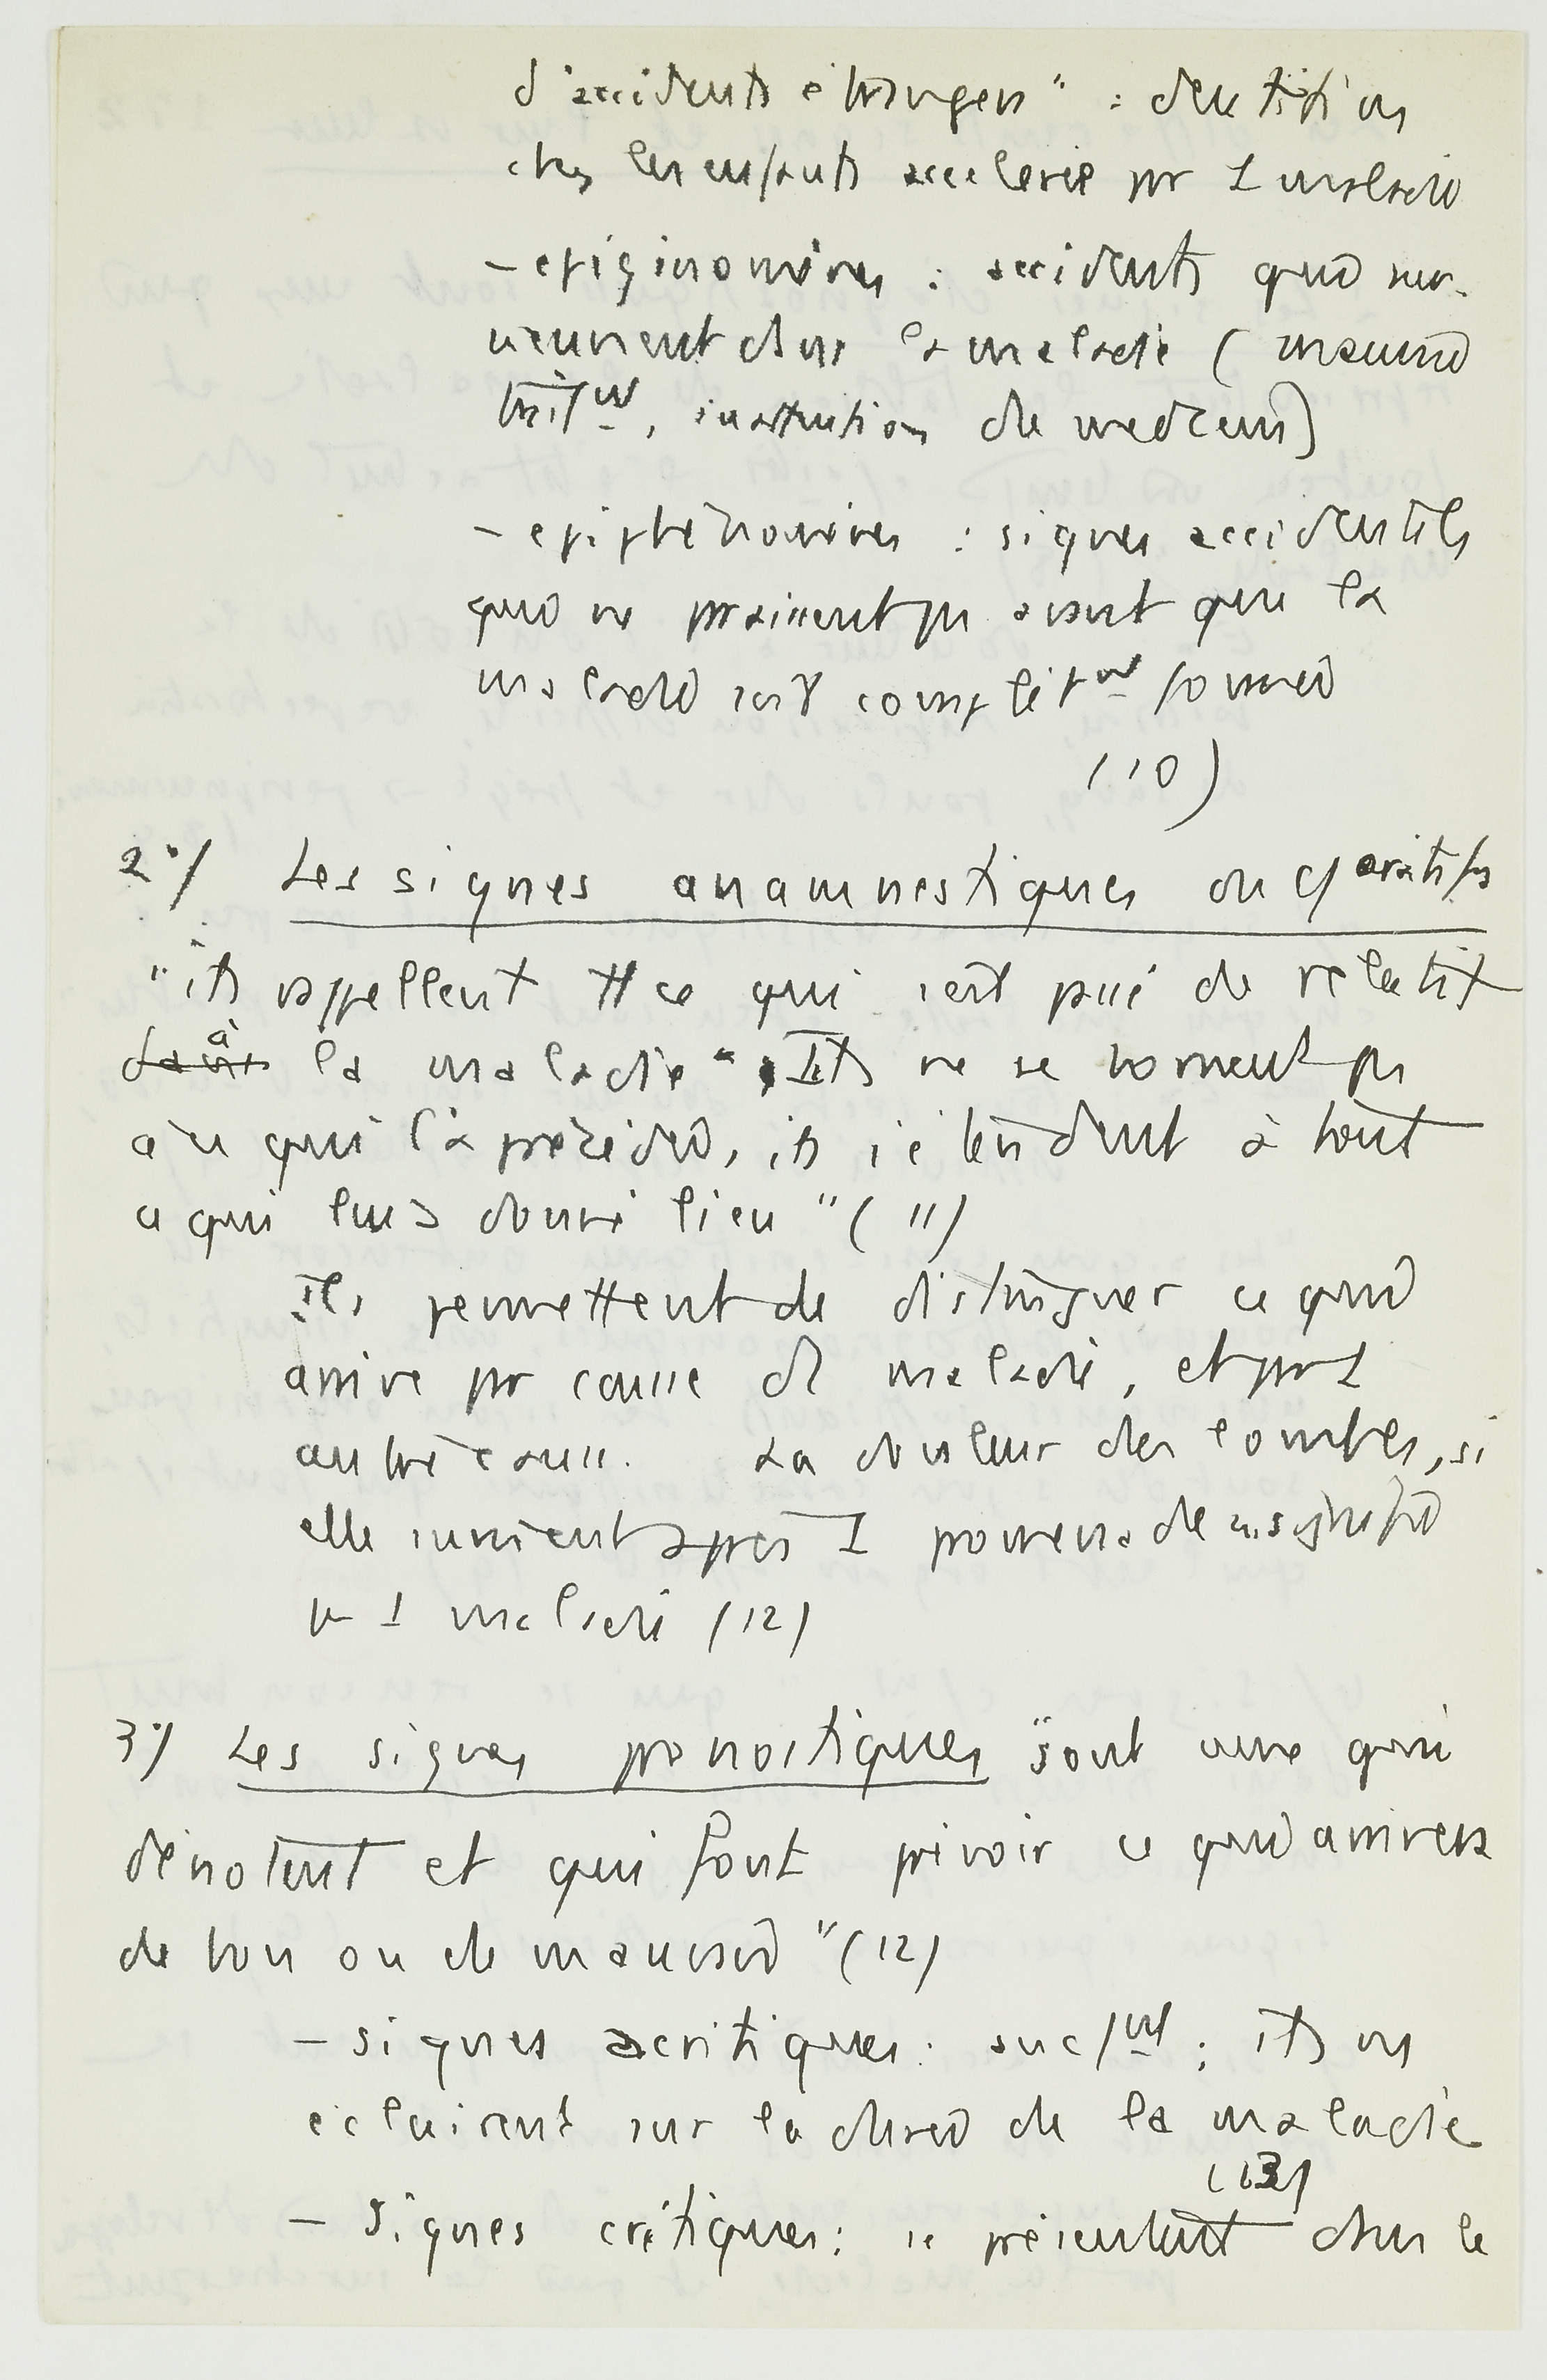 d'accidents étrangers" : dentition
chez les enfants accélérée par 1 maladie
- epiginomènes : accidents qui sur-
viennent dans la maladie (mauvais
trait^mt, inattention du médecin)
- epiphénomènes : signes accidentels
qui ne paraissent pas avant que la
maladie soit complèt^mt formée
(10)
2°/ Les signes anamnestiques ou c/oratifs
"ils rappellent tt ce qui s'est passé de relatif
à la maladie". Ils ne se bornent pas
à ce qui l'a précédée, ils s'étendent à tout
ce qui lui a donné lieu" (11)
Ils permettent de distinguer ce qui
arrive par cause de maladie, et par 1
autre cause. La douleur des lombes, si
elle survient après 1
pas 1 maladie (12)
3°/ Les signes pronostiques "sont ceux qui
dénotent et qui font prévoir ce qui arrivera
de bon ou de mauvais" (12)
- signes acritiques : ; ils ns
éclairent sur la durée de la maladie
(13)
- Signes critiques : se présentent dans le